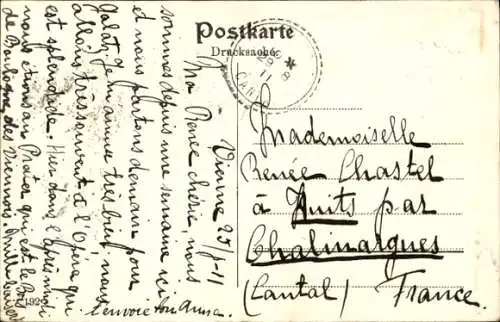 Postkarte
Drucksache
29
11
8
CAN
Vienne 25/8-11
Ma Renée chérie nous
sommes depuis une semaine ici
et nous partons demain pour
Galatz. Je m'amuse très bien nous
allons très souvent à l'Opéra qui
est splendide. Hier dans l'après-midi
nous étions au Prater qui est le Bois
de Boulogne des Viennois. Mille baisers
t'envoie ton Anna.
192
Mademoiselle
Renée Chastel
à Huits par
Chalmargues
(Cantal) France